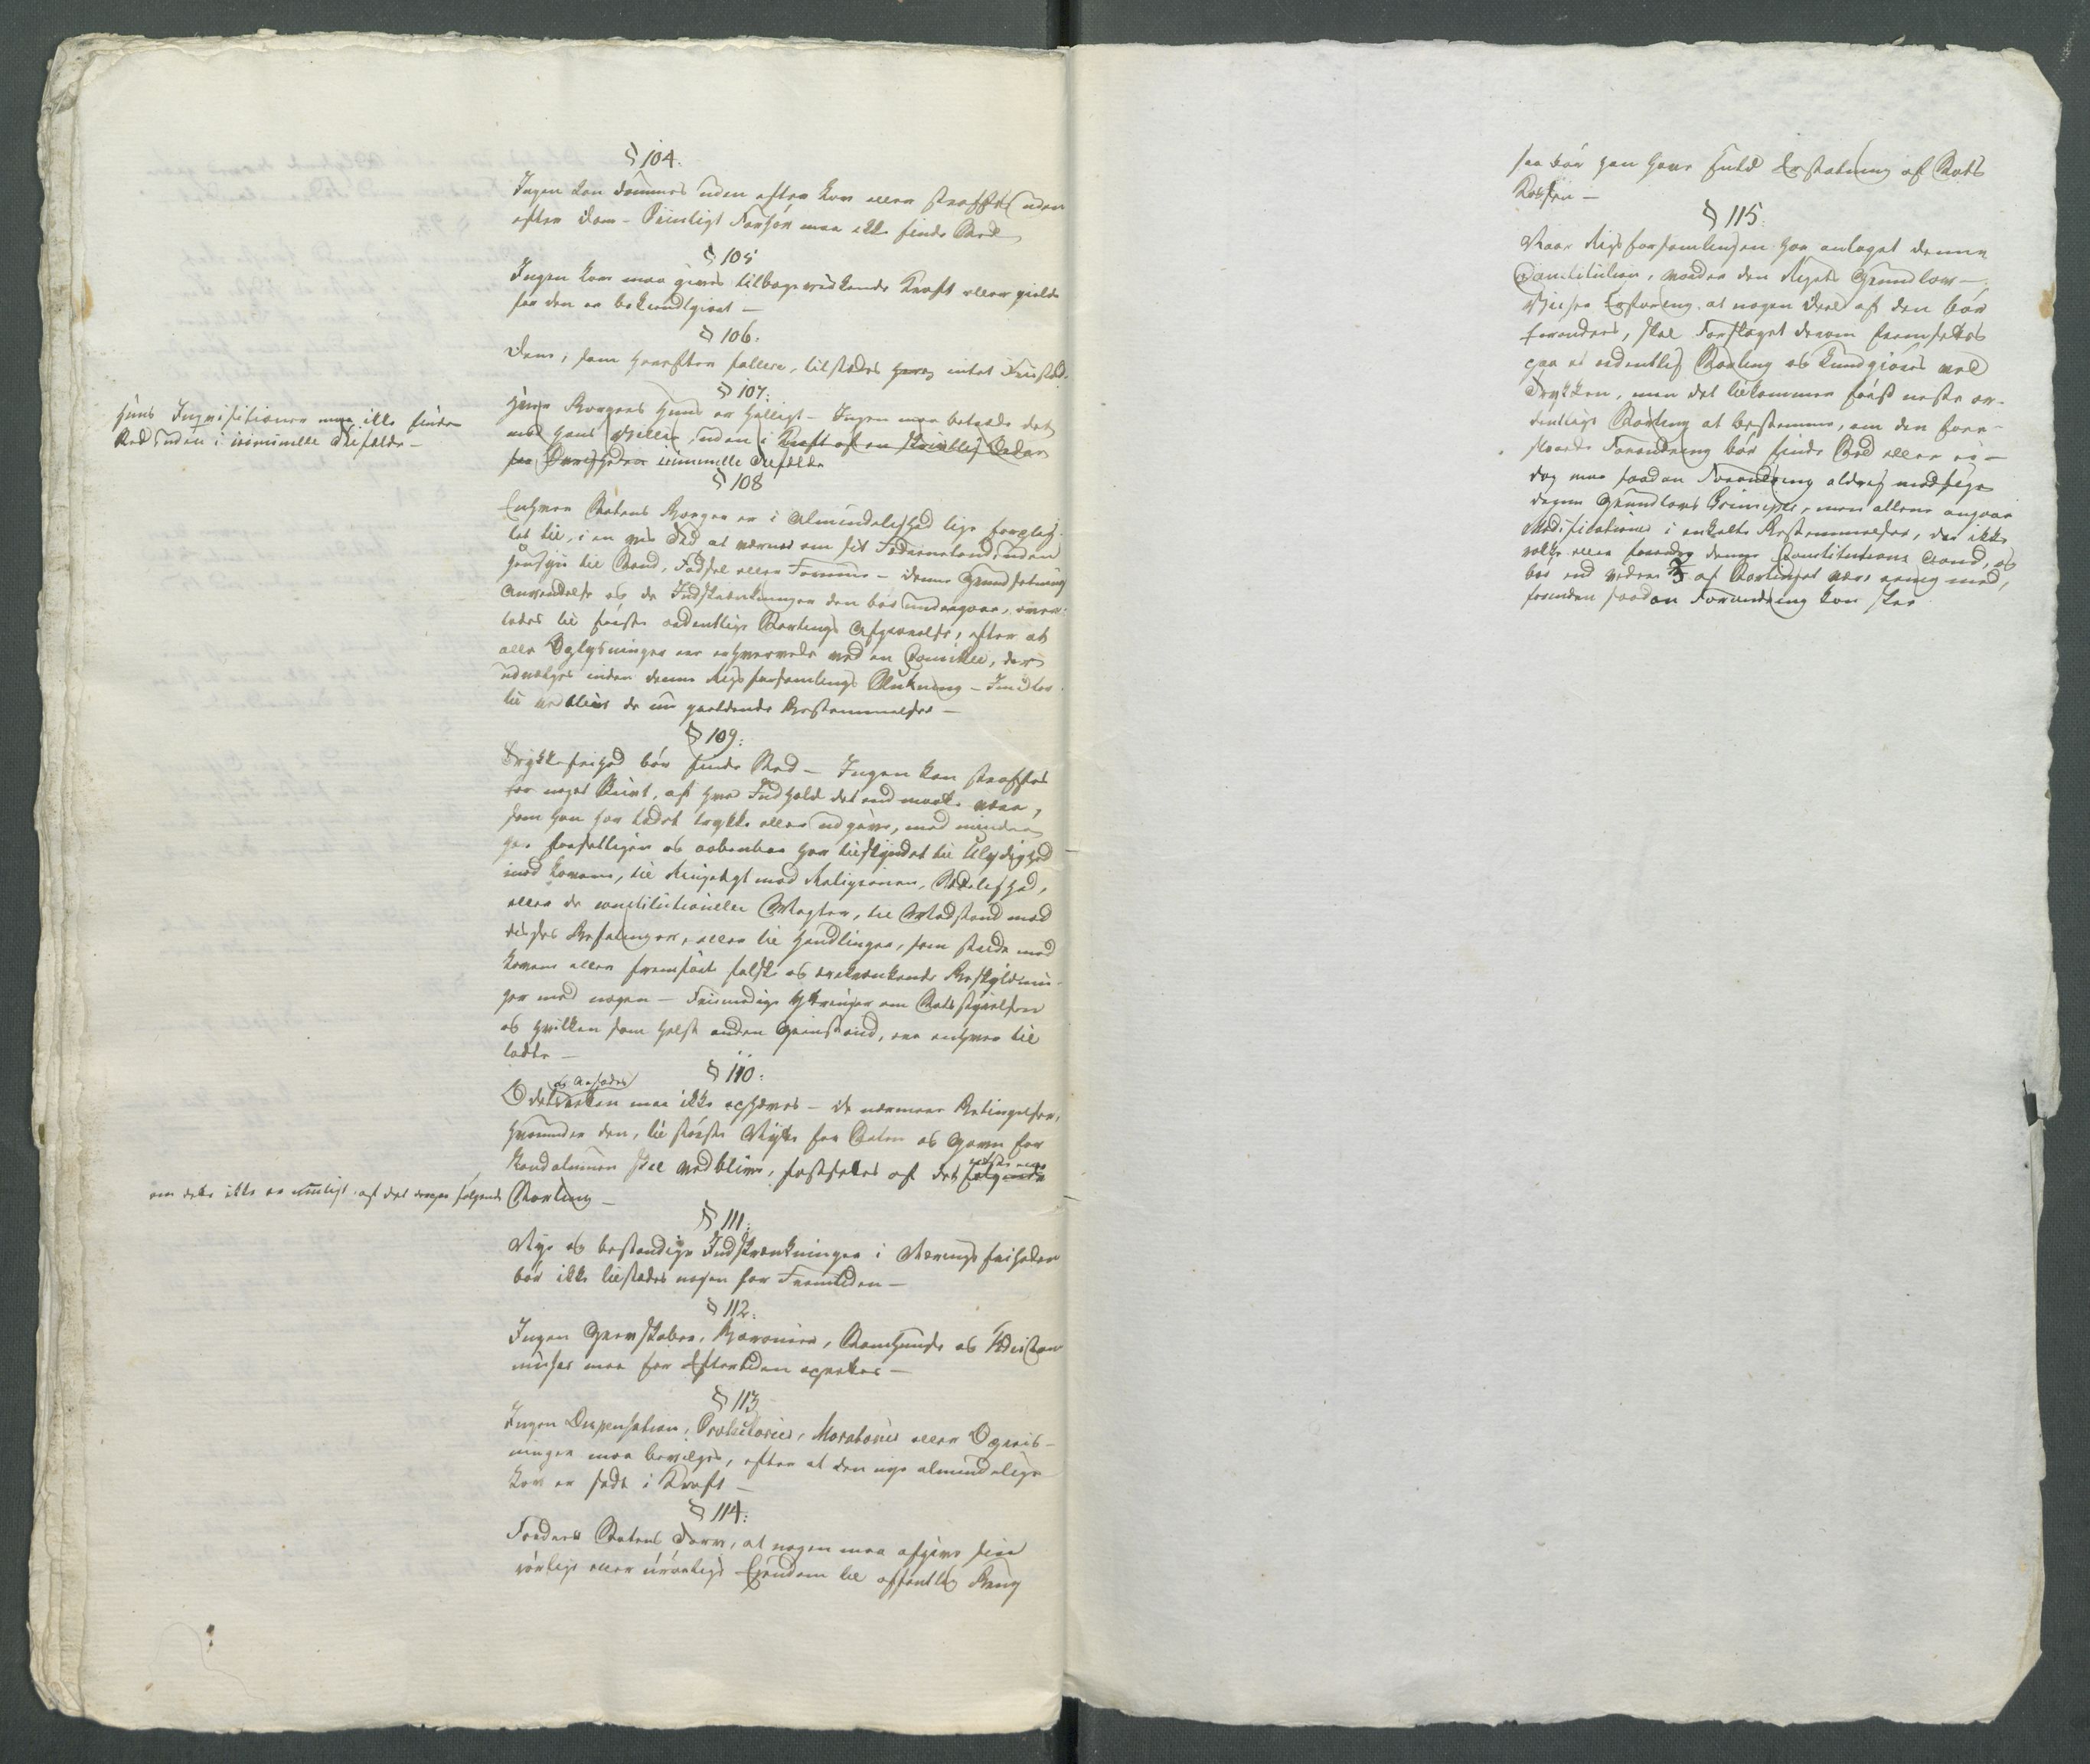 § 104.
Ingen kan dømmes uden efter Lov eller straffes uden
efter Dom – Piinligt Forhør maa ikke finde Sted
§ 105
Ingen Lov maa gives tilbagevirkende Kraft eller gielde
før den er bekiendtgiort –
§ 106.
Dem, som herefter fallere, tilstædes intet Friested.
§ 107.
Huus Inqvisitioner maa ikke finde
Sted uden i criminelle Tilfælde –
Hver Borgers Huus er helligt – Ingen maa betræde det
mod hans Villie, uden i Kraft af en skriftlig Ordre
fra Øvrigheden criminelle Tilfælde
§ 108
Enhver Statens Borger er i Almindelighed lige forplig-
tet til, i en vis Tid at værne om sit Fædreneland, uden
Hensyn til Stand, Fødsel eller Formue – Denne Grundsætnings
Anvendelse og de Indskrænkninger den bør undergaae, over-
lades til første ordentlige Stortings Afgiørelse, efter at
alle Oplysninger ere erhvervede ved en Comitee, der
udvælges inden denne Rigsforsamlings Slutning – Imidler
til vedblive de nu gieldende Bestemmelser –
§ 109:
Trykkefrihed bør finde Sted – Ingen kan straffes
for noget Skrivt, af hvad Indhold det end maatte være,
som han har ladet trykke eller udgive, med mindre
han forsætligen og aabenbare har tilskyndet til Ulydighed
mod Lovene, til Ringeagt mod Religionen, Sædelighed,
eller de constitutionelle Magter, til Modstand mod
disses Befalinger, eller til Handlinger, som stride mod
Lovene eller fremført falske og ærekrænkende Beskyldnin-
ger mod nogen – Friemodige Yttringer om Statsstyrelsen
og hvilken som helst anden Gienstand, ere enhver til
ladte –
§ 110:
og Aasædes
Odelsretten maa ikke ophæves – De nærmere Betingelser,
hvorunder den, til største Nytte for Staten og Gavn for
Landalmuen skal vedblive, fastsættes af det følgende
om dette ikke er muligt af det derpaa følgende Storting –
§ 111:
Nye og bestandige Indskrænkninger i Næringsfriheden
bør ikke tilstædes nogen for Fremtiden –
§ 112:
Ingen Grevskaber, Baronier, Stamhuse og Fideicom
misser maa for Eftertiden oprettes –
§ 113
Ingen Dispensation, Protectorier, Moratorier eller Opreis-
ninger maa bevilges, efter at den nye almindelige
Lov er sadt i Kraft –
§ 114:
Fordrer Statens Tarv, at nogen maa afgive sin
rørlige eller urørlige Eiendom til offentlig Brug
saa bør han have fuld Erstatning af Stats
Kassen –
§ 115:
Naar Rigsforsamlingen har antaget denne
Constitution, vorder den Rigets Grundlov –
Viser Erfaring, at nogen Deel af den bør
forandres, skal Forslaget derom fremsættes
paa et ordentlig Storting og kundgiøres ved
Trykken, men det tilkommer først næste or-
dentlige Storting at bestemme, om den fore-
slaaede Forandring bør finde Sted eller ei –
dog maa saadan Forandring aldrig modsige
denne Grundlovs Principer, men allene angaae
Modificationer i enkelte Bestemmelser, der ikke
denne Constitutions Aand, og
bør end videre 2/3 af Stortinget være eenig med,
forinden saadan Forandring kan skee